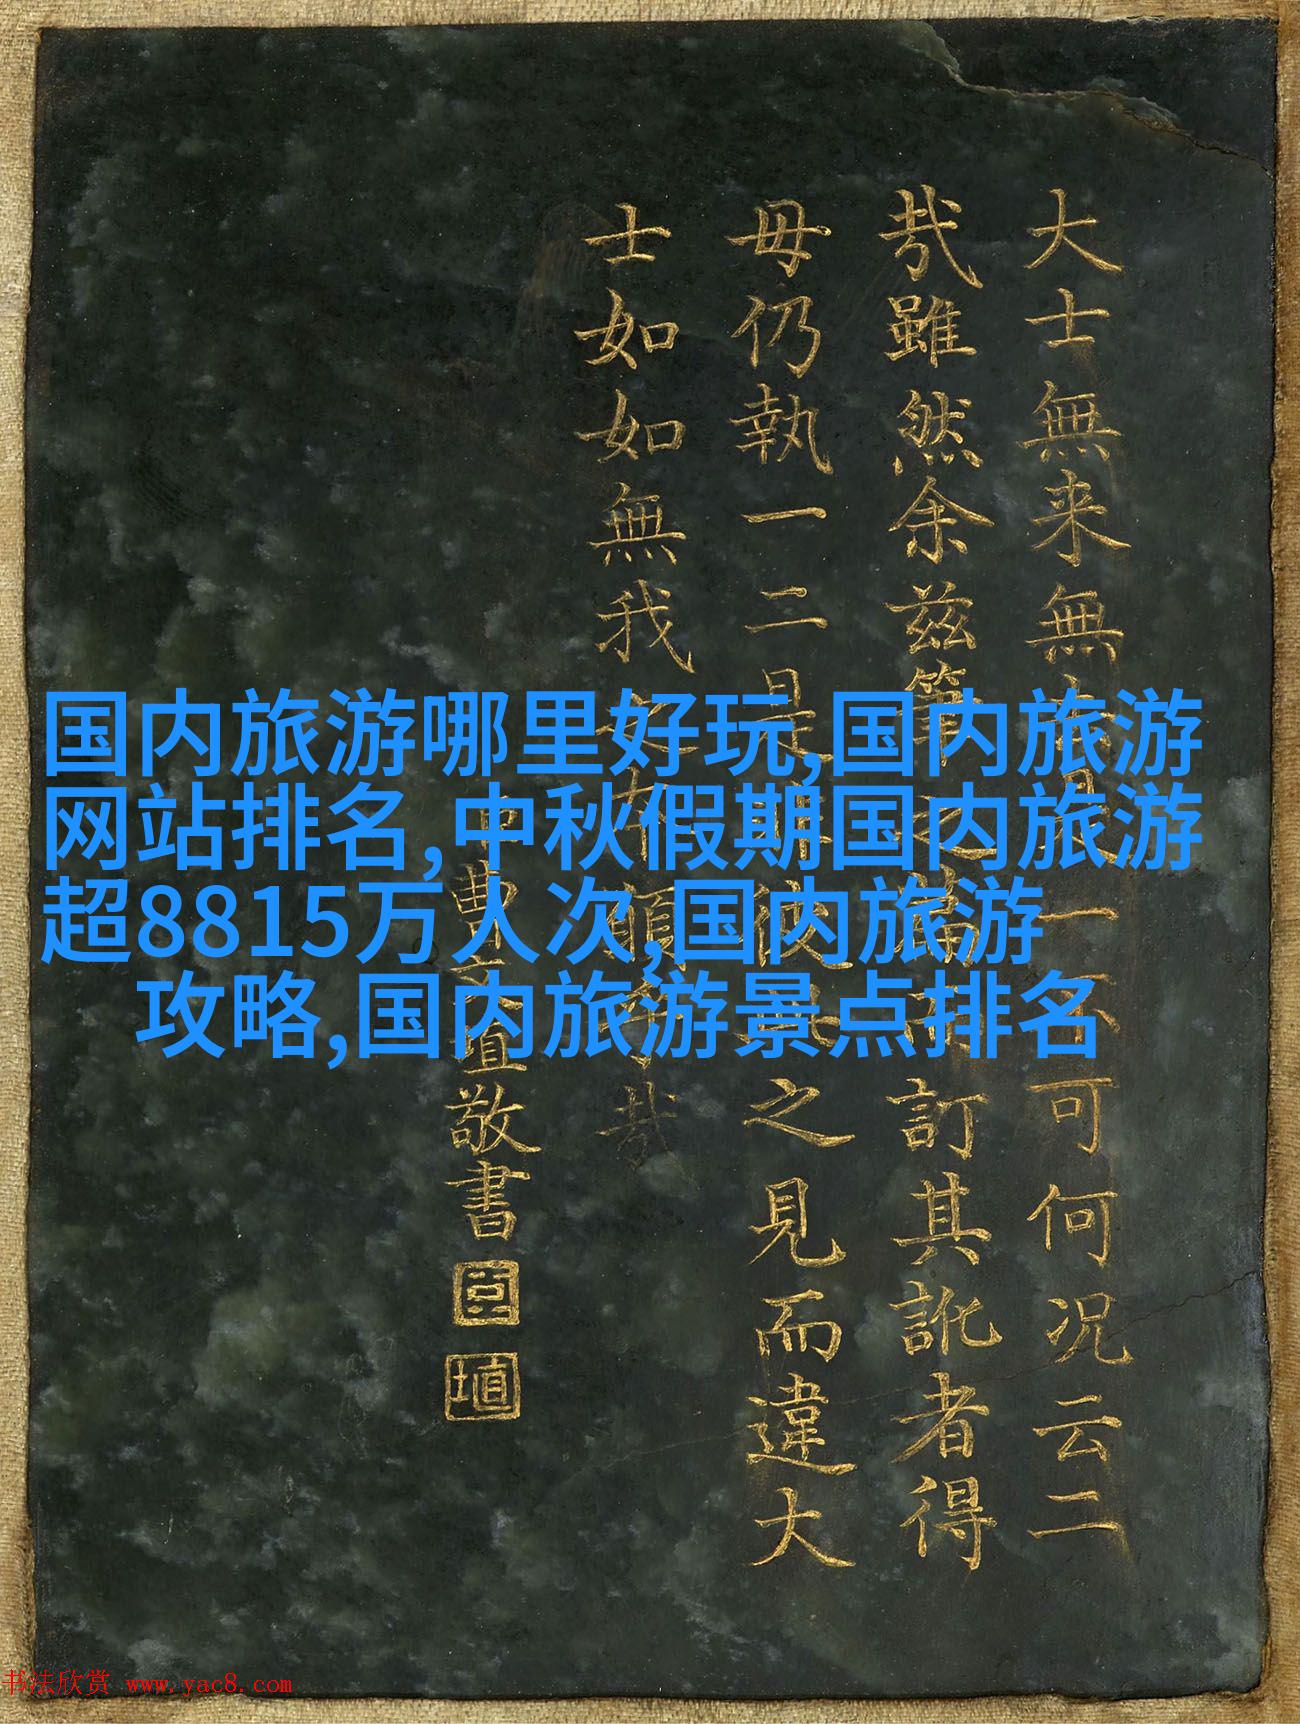 国内旅游哪里好玩,国内旅游
网站排名,中秋假期国内旅游
超8815万人次,国内旅游
攻略,国内旅游景点排名
大士無来無一可何况云二
哉雖然余兹訂其訛者得
毋仍執一二是之見而違大
士如如無我願哉
曹敬書
臣
埴
书法欣赏 www.yac8.com